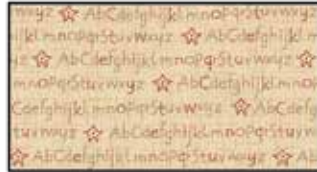 wxyz AbCdefghijkl mnoPqrStuv
ijkl mnoPqrStuvwxyz AbCdef
yz AbCdefghijkl mnoPqrStuvw
mnoPqrStuvwxyz AbCdefghijkl
Cdefghijkl mnoPqrStuvwxyz AbCdefg
tuvwxyz AbCdefghijkl mnoP
AbCdefghijkl mnoPqrStuvwxyz Ab